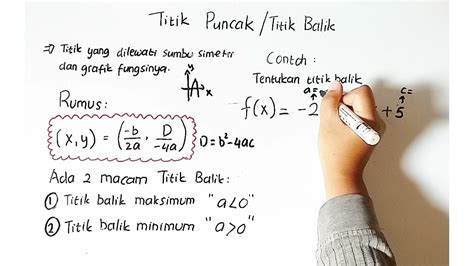 Titik Puncak / Titik Balik
=> Titik yang dilewati sumbu simetri
dan grafik fungsinya.
y
x
Rumus:
(x,y) = (-b/2a, D/-4a) D = b²-4ac
Ada 2 macam Titik Balik:
① Titik balik maksimum "a<0"
② Titik balik minimum "a>0"
Contoh:
Tentukan titik balik
a= c=
f(x) = -2 +5